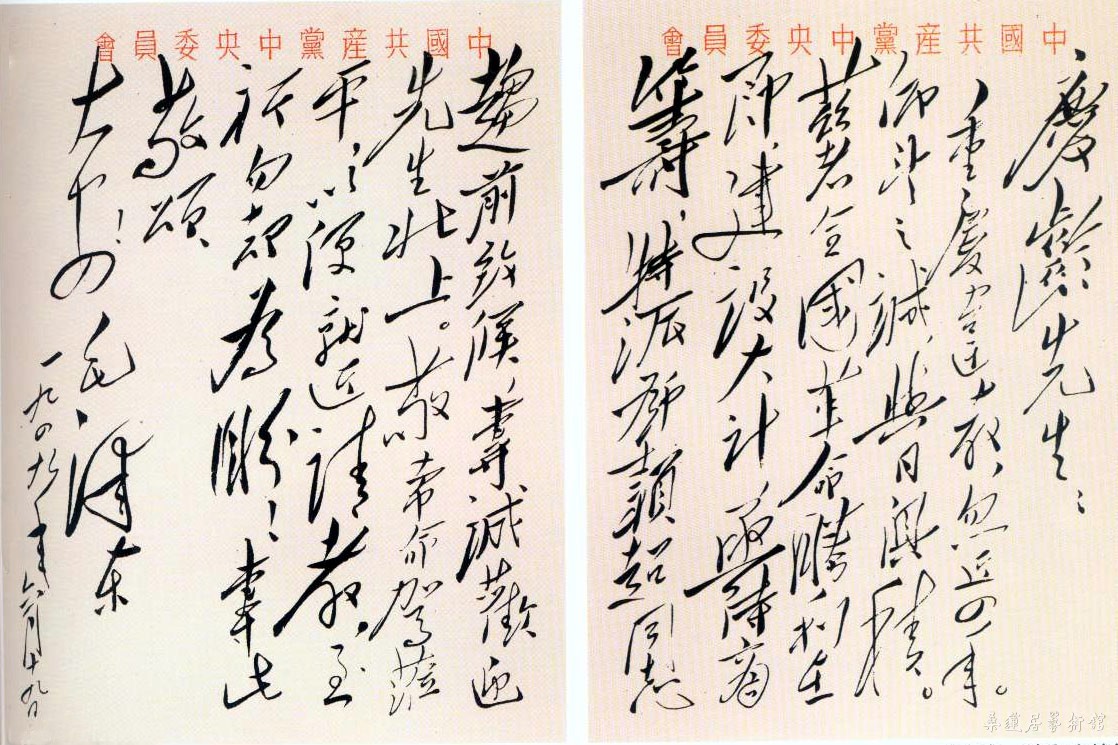 中國共産黨中央委員會
慶齡先生：
重慶違教，忽近四年。
仰望之誠，與日俱積。
茲者全國革命勝利在
即，建設大計，亟待商
籌，特派鄧穎超同志
中國共産黨中央委員會
趨前致候，專誠歡迎
先生北上。敬希命駕蒞
平，以便就近請教，至
祈勿却為盼！專此
敬頌
大安！毛澤東
一九四九年六月十九日
桑蓮居藝術館